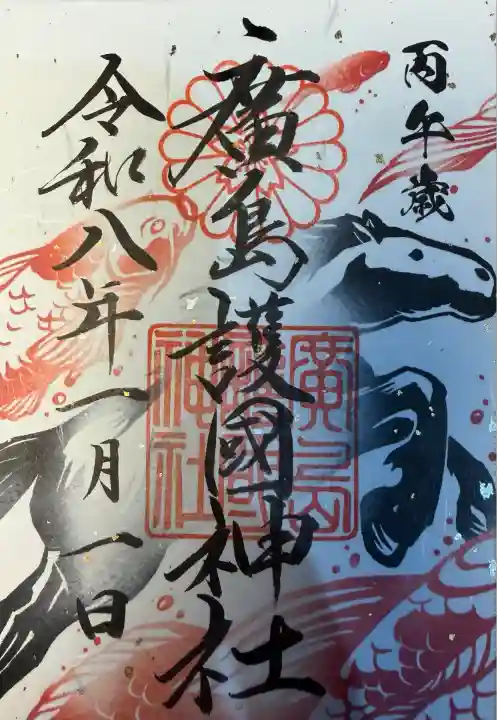 丙午歳
廣島護國神社
廣島護國神社
令和八年一月一日